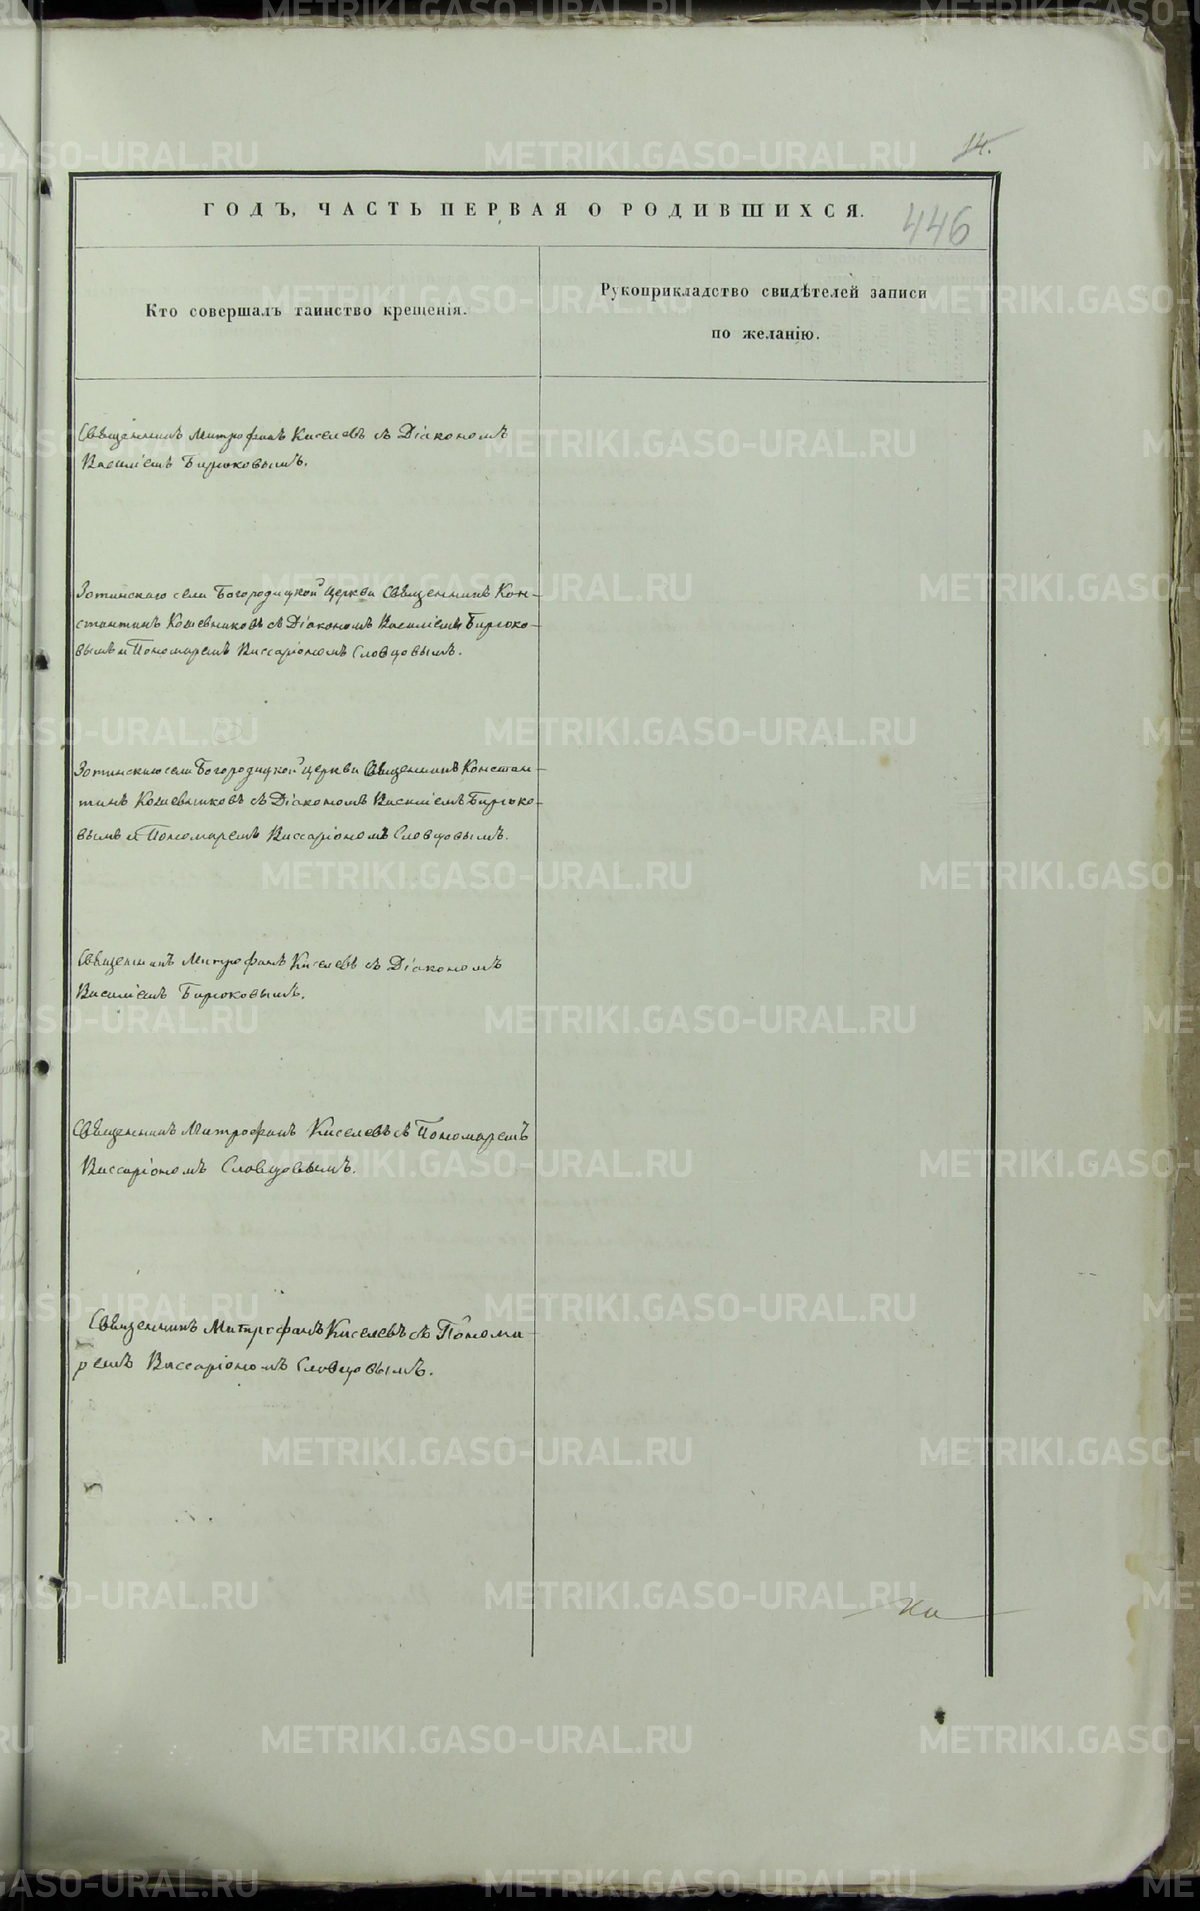 14.
ГОДЪ, ЧАСТЬ ПЕРВАЯ О РОДИВШИХСЯ.
446
Кто совершалъ таинство крещенія.
Рукоприкладство свидѣтелей записи
по желанію.
Священникъ Митрофанъ Киселевъ съ Діакономъ
Василіемъ Бирюковымъ.
Зотинскаго села Богородицкой церкви Священникъ Кон-
стантинъ Кожевниковъ съ Діакономъ Василіемъ Бирюко-
вымъ и Пономаремъ Виссаріономъ Словцовымъ.
Зотинскаго села Богородицкой церкви Священникъ Констан-
тинъ Кожевниковъ съ Діакономъ Василіемъ Бирюко-
вымъ и Пономаремъ Виссаріономъ Словцовымъ.
Священникъ Митрофанъ Киселевъ съ Діакономъ
Василіемъ Бирюковымъ.
Священникъ Митрофанъ Киселевъ съ Пономаремъ
Виссаріономъ Словцовымъ.
Священникъ Митрофанъ Киселевъ съ Понома-
ремъ Виссаріономъ Словцовымъ.
METRIKI.GASO-URAL.RU